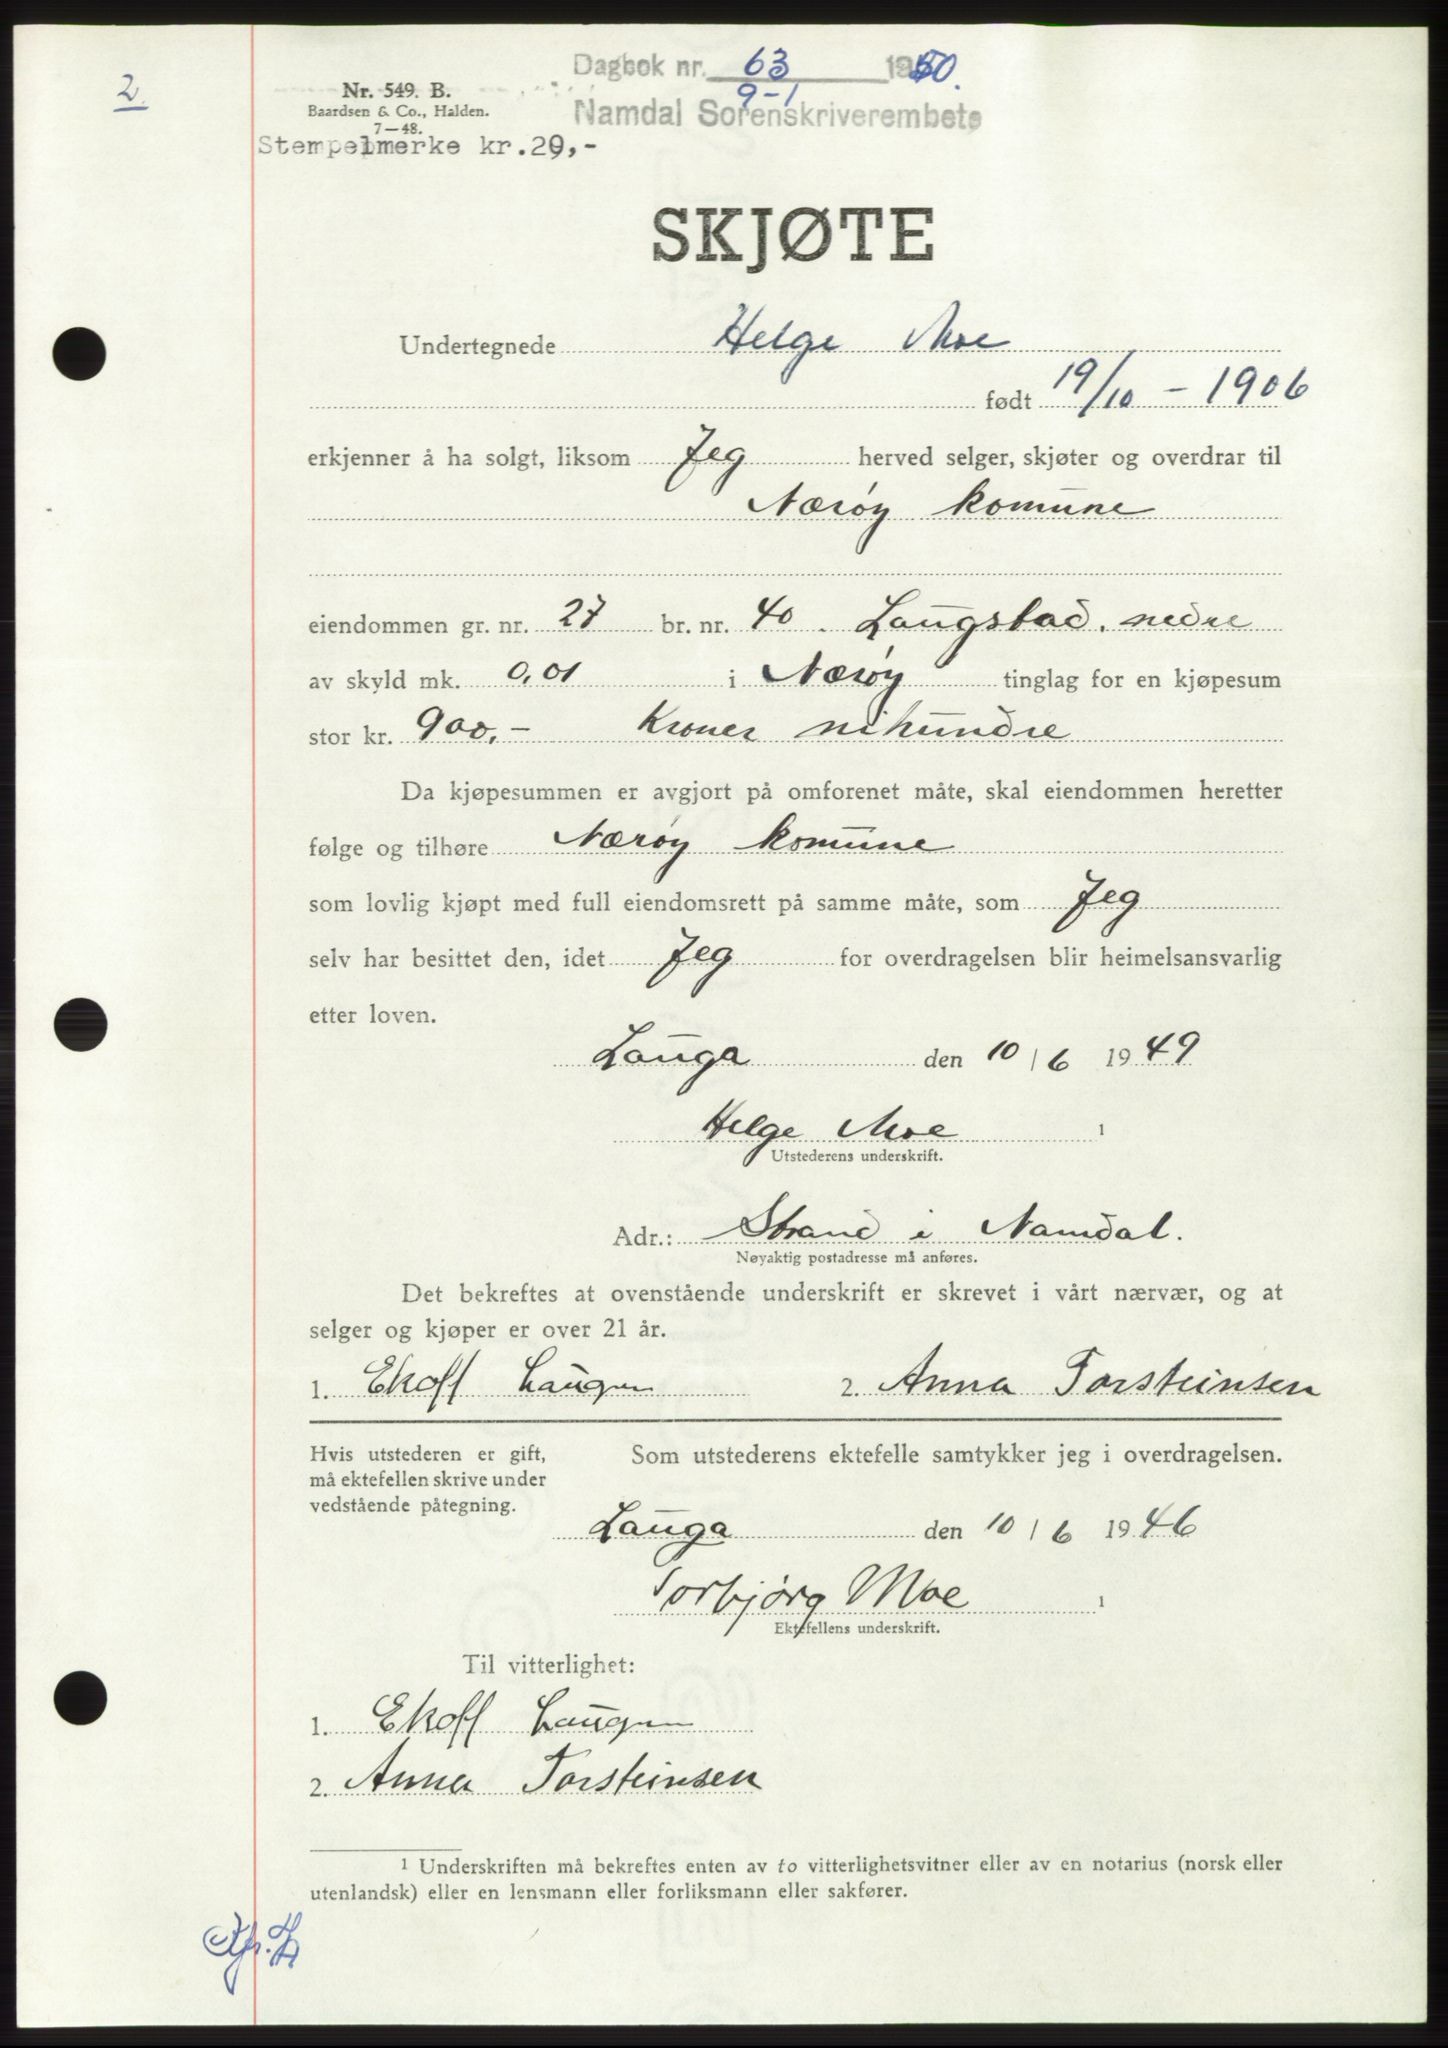 2.
Nr. 549. B.
Baardsen & Co., Halden.
7—48.
Stempelmerke kr.20,-
Dagbok nr. 63 1950.
9-1
Namdal Sorenskriverembete
SKJØTE
Undertegnede Helge Moe
født 19/10 - 1906
erkjenner å ha solgt, liksom Jeg herved selger, skjøter og overdrar til
Nærøy komune
eiendommen gr. nr. 27 br. nr. 40. Laugstad, nedre
av skyld mk. 0,01 i Nærøy tinglag for en kjøpesum
stor kr. 900,- Kroner nihundre
Da kjøpesummen er avgjort på omforenet måte, skal eiendommen heretter
følge og tilhøre Nærøy komune
som lovlig kjøpt med full eiendomsrett på samme måte, som Jeg
selv har besittet den, idet Jeg for overdragelsen blir heimelsansvarlig
etter loven.
Lauga den 10/6 1949
Helge Moe 1
Utstederens underskrift.
Adr.: Strand i Namdal.
Nøyaktig postadresse må anføres.
Det bekreftes at ovenstående underskrift er skrevet i vårt nærvær, og at
selger og kjøper er over 21 år.
1. Ekoff Laugen 2. Anna Torsteinsen
Hvis utstederen er gift,
må ektefellen skrive under
vedstående påtegning.
Som utstederens ektefelle samtykker jeg i overdragelsen.
Lauga den 10/6 1946
Torbjørg Moe 1
Ektefellens underskrift.
Til vitterlighet:
1. Ekoff Laugen
2. Anna Torsteinsen
1 Underskriften må bekreftes enten av to vitterlighetsvitner eller av en notarius (norsk eller
utenlandsk) eller en lensmann eller forliksmann eller sakfører.